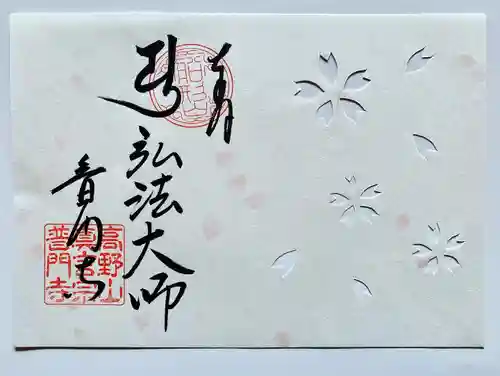 奉
弘法大師
普門寺
高野山
真言宗
普門寺